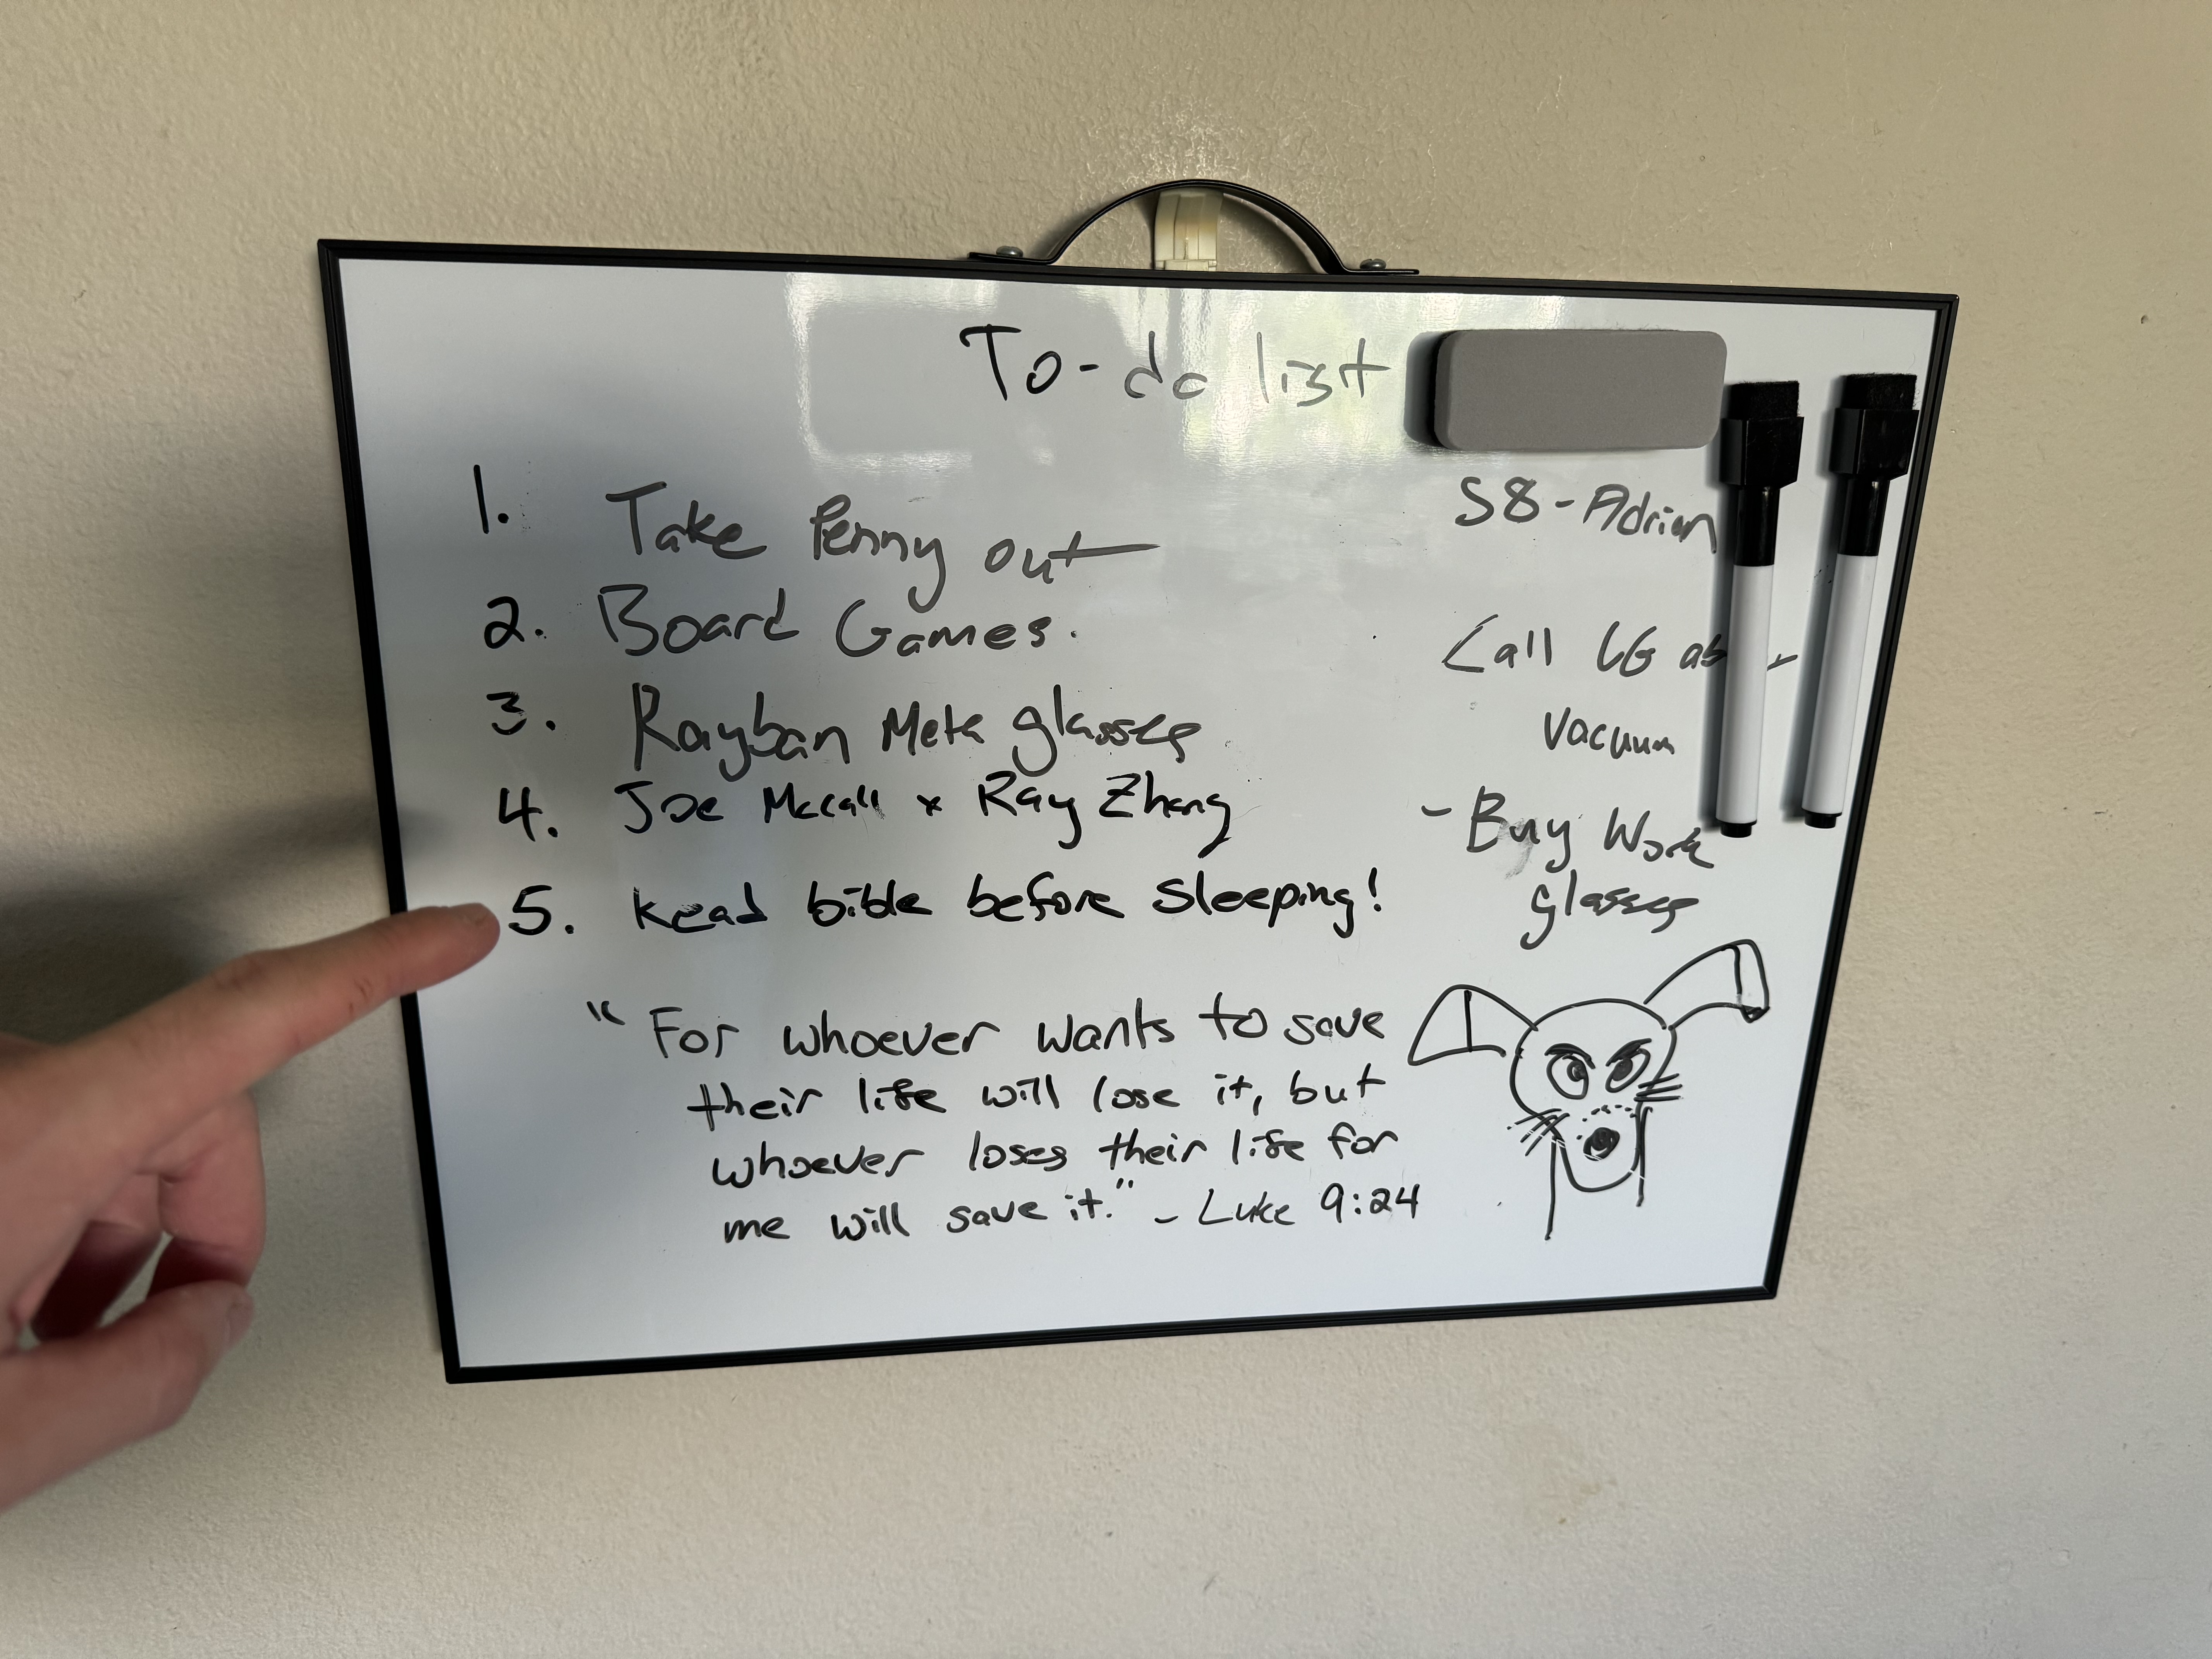 To-do list
1. Take Penny out
2. Board Games.
3. Rayban Meta glasses
4. Joe Mccall x Ray Zhang
5. Read bible before sleeping!
"For whoever wants to save
their life will lose it, but
whoever loses their life for
me will save it." - Luke 9:24
S8-Adrian
Call LG
vacuum
- Buy Work
glasses